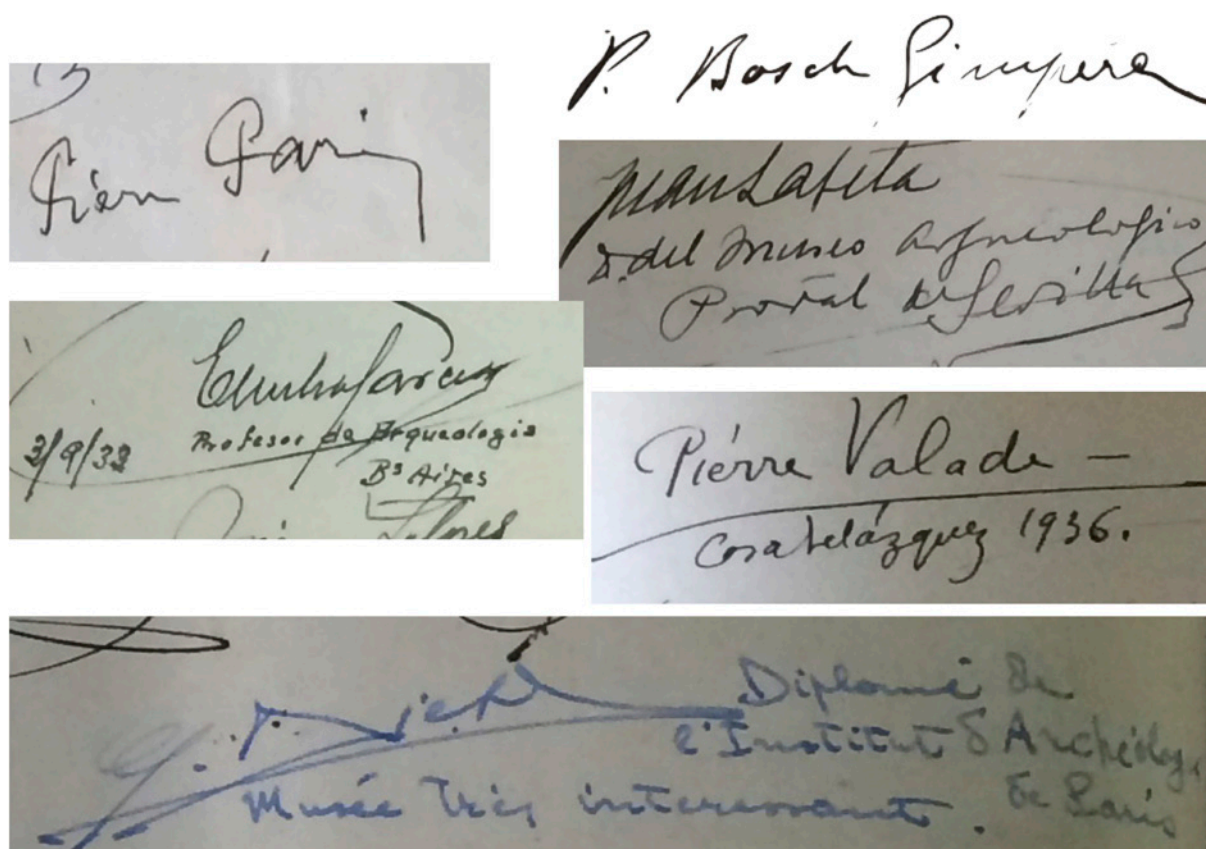 Pierre Paris
P. Bosch Gimpera
Juan Lafita
D. del Museo Arqueologico
Proval de Sevilla
2/9/32
Profesor de Arqueologia
Bs Aires
Flores
Pierre Valade –
Casa Velázquez 1936.
Diplomé de
l'Institut d'Archéolog.
de Paris
Musée très interessant.